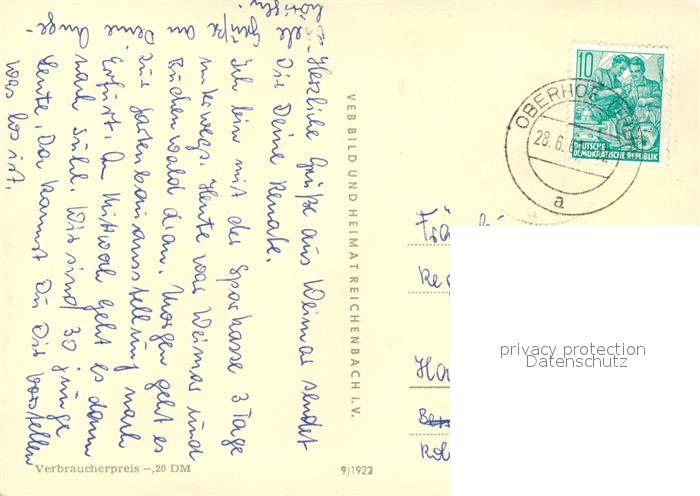 Herzliche Grüße aus Weimar sendet
Dir Deine Renate.
Ich bin mit der Sparkasse 3 Tage
unterwegs. Heute war Weimar und
Buchenwald dran. Morgen geht es
zur Gartenbauausstellung nach
Erfurt. Am Mittwoch geht es dann
nach Suhl. Wir sind 30 junge
Leute. Da kannst Du Dir vorstellen
was los ist.
Grüße an
Deine Ange-
hörigen.
VEB BILD UND HEIMAT REICHENBACH I.V.
Verbraucherpreis -,20 DM
9/1922
10
DEUTSCHE
DEMOKRATISCHE REPUBLIK
5
OBERHOF
28.6.
a
privacy protection
Datenschutz